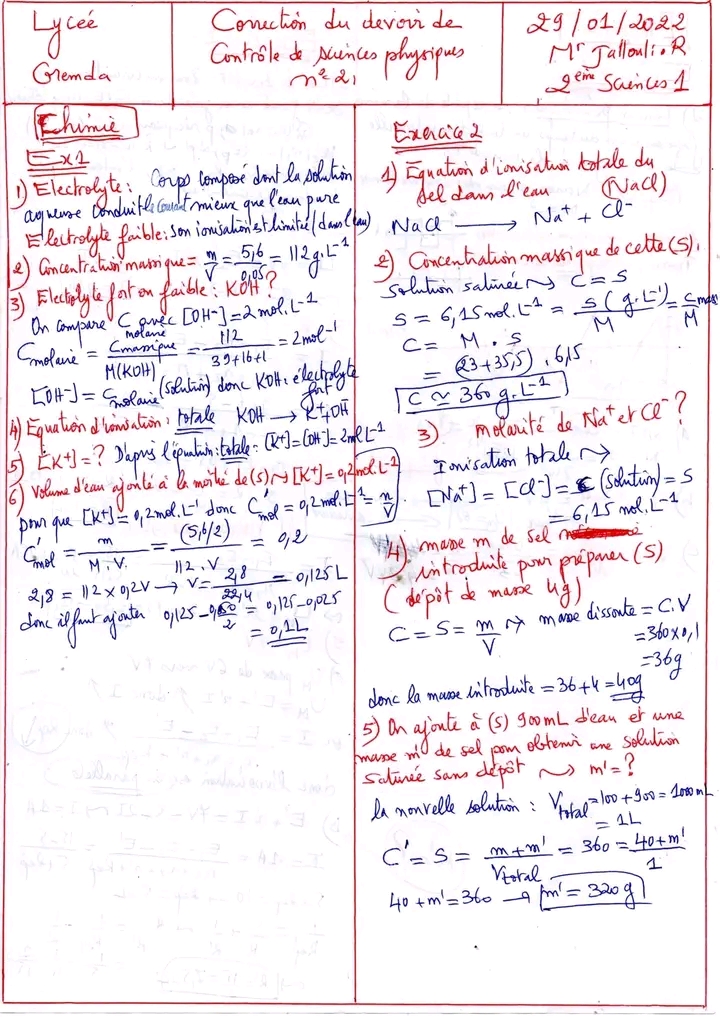 Lycéé
Grenda
Correction du devoir de
Contrôle de sciences physiques
n°2.
29/01/2022
Mr Jallouli.R
2ème Sciences 1
Chimie
Ex1
1) Electrolyte: Corps composé dont la solution
aqueuse conduit le courant mieux que l'eau pure
Electrolyte faible: son ionisation est limitée (dans l'eau)
2) Concentration massique = m/V = 5,6/0,05 = 112 g.L-1
3) Electrolyte fort ou faible: KOH?
On compare C molaire avec [OH-] = 2 mol.L-1
C molaire = C massique / M(KOH) = 112 / 39+16+1 = 2 mol-1
[OH-] = C molaire (solution) donc KOH: électrolyte fort
4) Equation d'ionisation: totale KOH → K+ + OH-
5) [K+] = ? D'après l'équation: totale: [K+] = [OH-] = 2 mol L-1
6) Volume d'eau ajouté à la moitié de (s) ⇝ [K+] = 0,2 mol.L-1
pour que [K+] = 0,2 mol.L-1 donc C'mol = 0,2 mol.L-1 = n/V
C'mol = m / M.V = (5,6/2) / 112.V = 0,2
2,8 = 112 x 0,2V → V = 2,8/22,4 = 0,125 L
donc il faut ajouter 0,125 - 0,050/2 = 0,125 - 0,025
= 0,1L
Exercice 2
1) Equation d'ionisation totale du
sel dans l'eau (NaCl)
NaCl → Na+ + Cl-
2) Concentration massique de cette (S).
Solution saturée ⇝ C = s
s = 6,15 mol.L-1 = s(g.L-1) / M = C mass / M
C = M . s
= (23+35,5) . 6,15
C ≃ 360 g.L-1
3). molarité de Na+ et Cl-?
Ionisation totale ⇝
[Na+] = [Cl-] = C (solution) = S
= 6,15 mol.L-1
4) masse m de sel
introduite pour préparer (S)
(dépôt de masse 4g)
C = S = m/V ⇝ masse dissoute = C.V
= 360 x 0,1
= 36g
donc la masse introduite = 36 + 4 = 40g
5) On ajoute à (s) 900 mL d'eau et une
masse m' de sel pour obtenir une solution
saturée sans dépôt ⇝ m' = ?
la nouvelle solution: V total = 100 + 900 = 1000 mL
= 1L
C' = S = m+m' / V total = 360 = 40+m' / 1
40 + m' = 360 → m' = 320 g